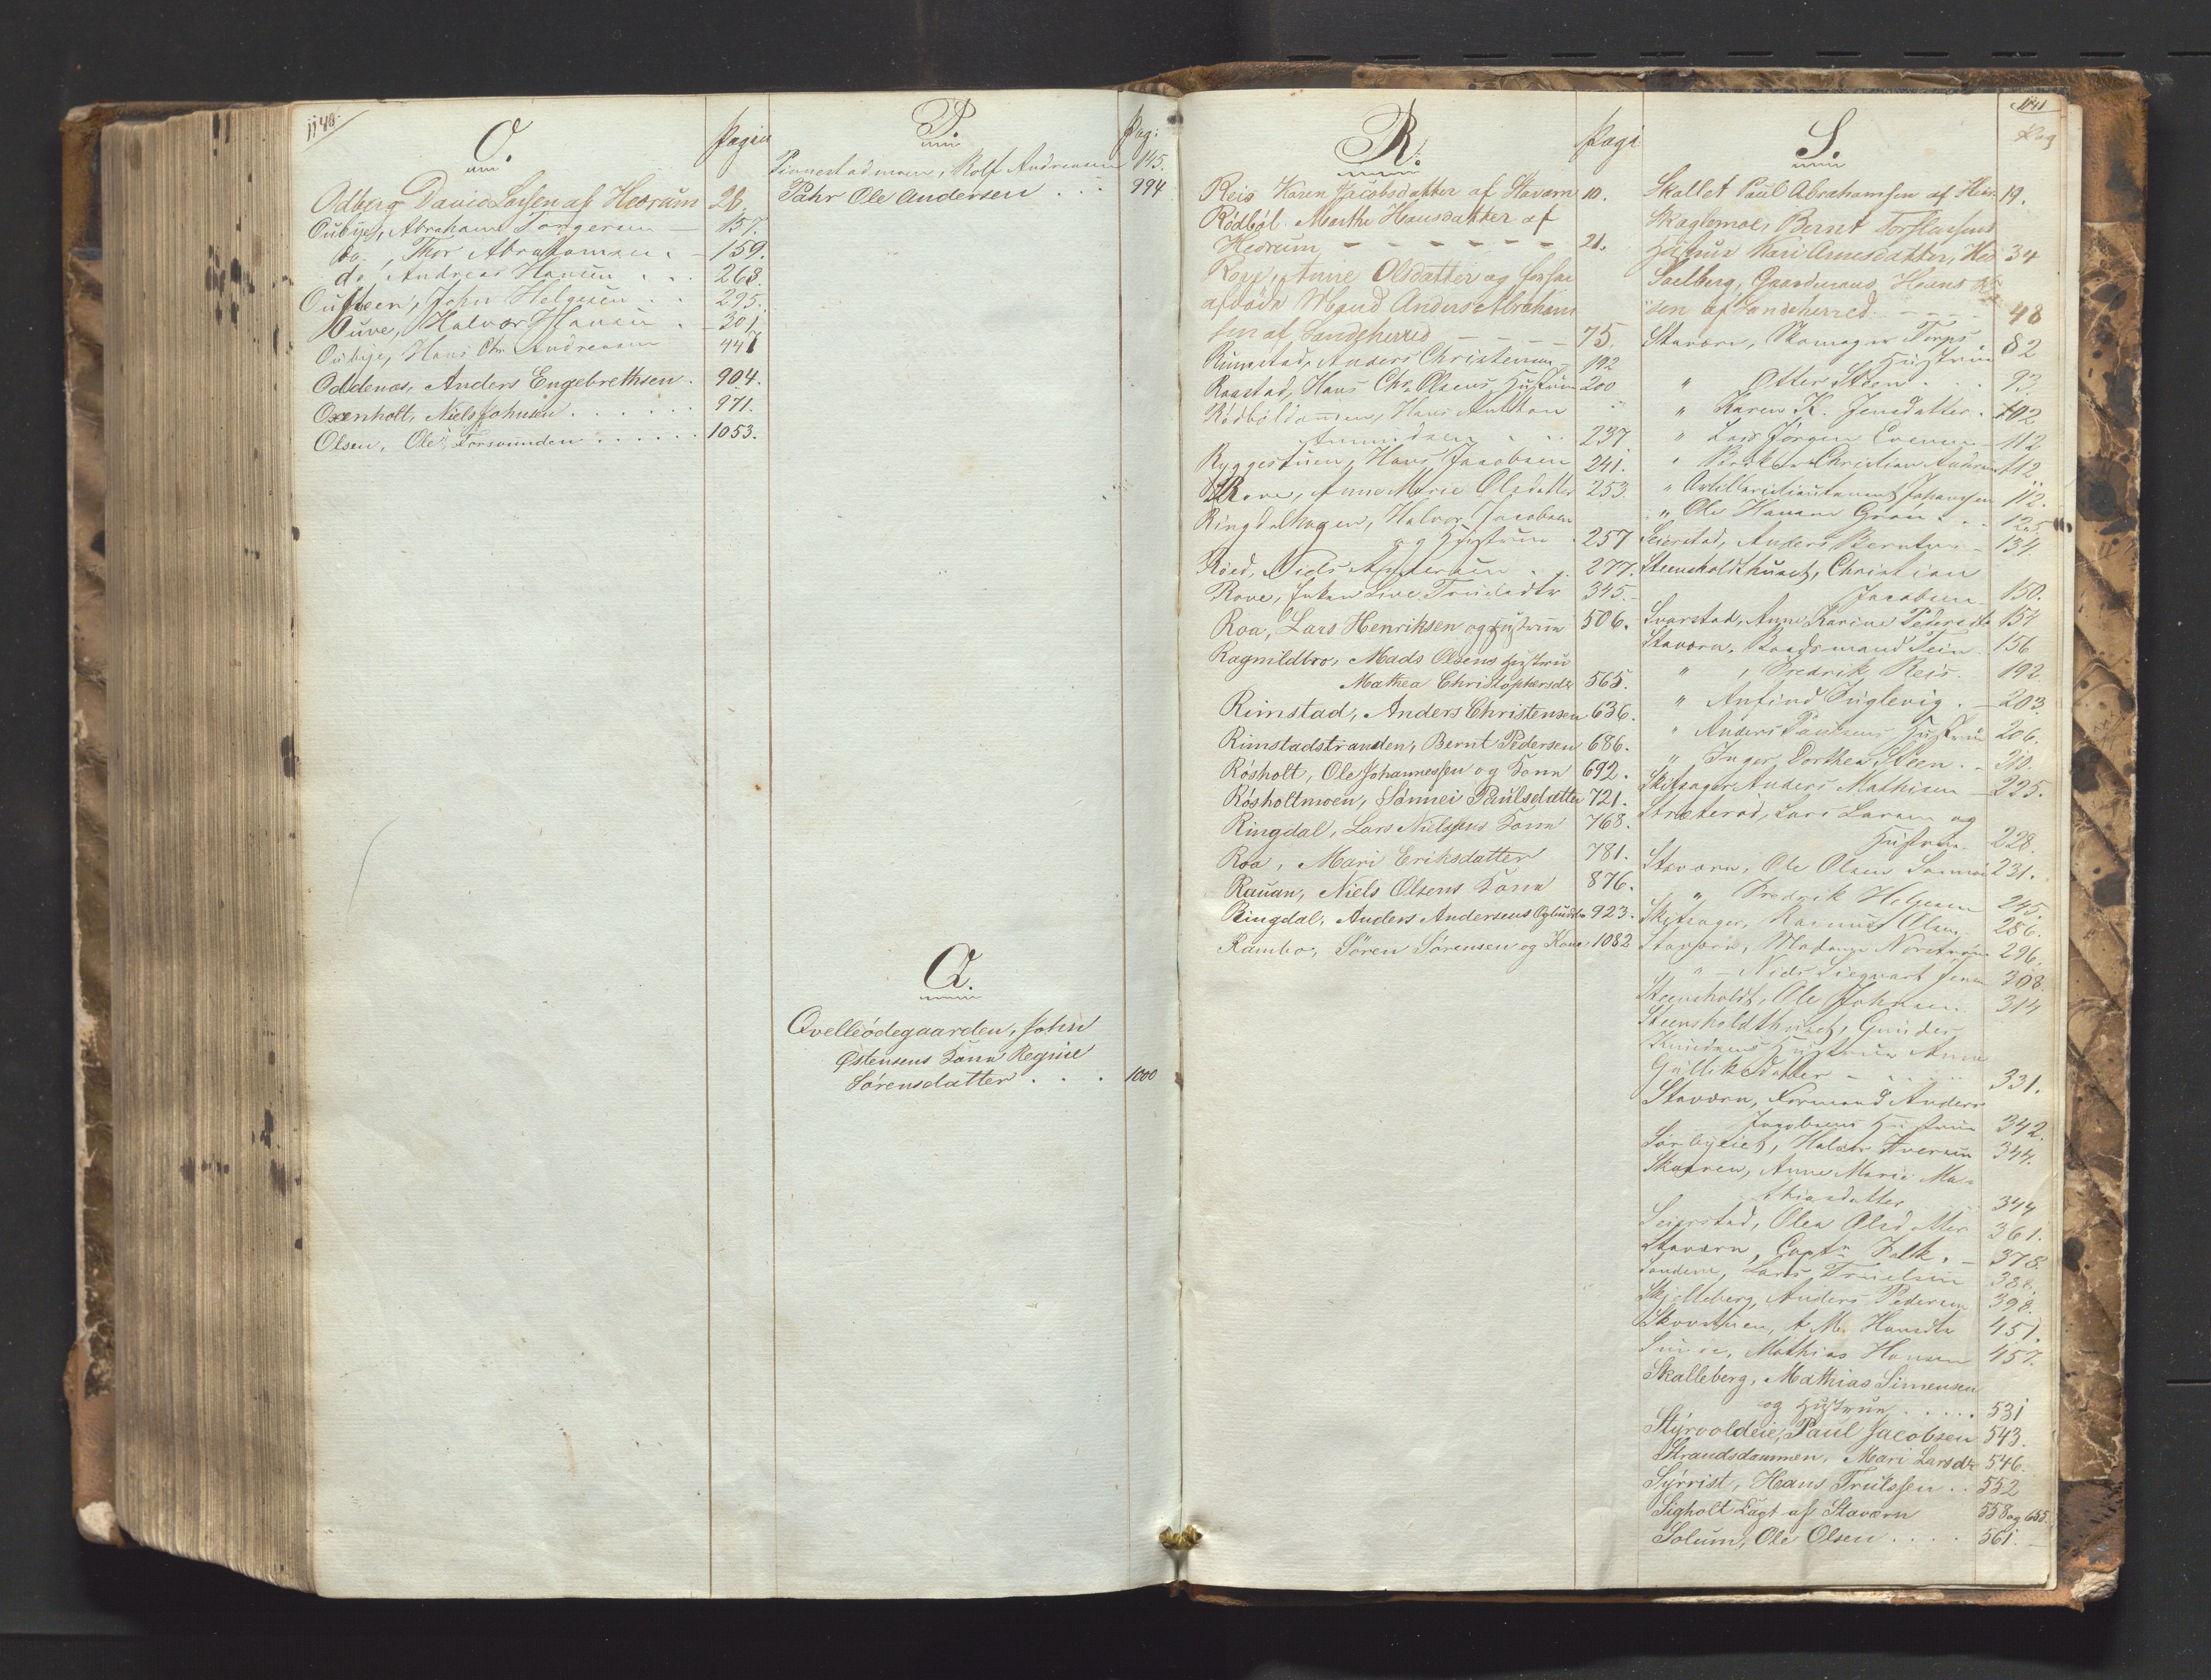 1140.
O.
Pagina
Odberg David Larsen af Hedrum 26.
Oubÿe, Abraham Torgersen — 157.
do, Thor Abrahamsen. — 159.
do, Andreas Hansen . . . 268.
Oulteen, John Helgesen . . 295.
Ouve, Halvor Hansen . — 301.
Oubÿe, Hans Chr. Andreasen 447
Oddenæs, Anders Engebrethsen. 904.
Oxenholt, Niels Johnsen . . . . . . 971.
Olsen, Ole, Torsvunden . . . . . . 1053.
P.
Pag:
Pinnestadmoen, Rolf Andreasen 145.
Pahr Ole Andersen . . . 994
Q.
Qvelleödegaarden, John
Østensens Kone Regine
Sörensdatter . . . 1000
R.
Pagi
Reis Karen Jacobsdatter af Stavern 10.
Rödböl. Marthe Hansdatter af
Hedrum - - - - - - - 21.
Anne Olsdatter og hendes
afdöde Mand Anders Abraham
sen af Sandeherred - - - - 75.
Rimstad, Anders Christensen — 192
Raastad, Hans Chr. Olsens Hustru 200
Rödbóldammen, Hans
Amundsen . . . 237
Ryggestuen, Hans Jacobsen 241.
Rove, Anne Marie Olsdatter 253.
Ringdalhagen, Halvor Jacobsen
og Hustrue 257
Röed, Niels Andersen . . 277.
Rove, Live Truelsdtr 345.
Roa, Lars Henriksen og Hustrue 506.
Ragnildbro, Mads Olsens Hustru
Mathea Christophersdtr 565.
Rimstad, Anders Christensen 636.
Rimstadstranden, Bernt Pedersen 686.
Rósholt, Ole Johannessen og Kone 692.
Rósholtmoen, Sönnei Paulsdatter 721.
Ringdal, Lars Nielsens Kone 768.
Roa, Mari Eriksdatter 781.
Rauan, Niels Olsens Kone 876.
Ringdal, Anders Andersens 923.
Rambo, Sören Sörensen og Kone 1082
1141
S.
Pag
Skallet Paul Abrahamsen af Hed. 19.
Skaglemoe, Bernt Torstensens
Hustrue Kari Arnesdatter, Hed 34
Soelberg, Gaardmand Hans
sen af Sandeherred - - - - 48
Stavern, Skomager Torps
Hustrue 82
" Otter Steen . . . 93
" Karen K. Jensdatter . 102
" Lars Jörgen Evensen 112
" Christian 112.
" Artillerilieutenant Johansen 112.
" Ole Hansen Gran . . . 125
Seierstad, Anders Berntsen — 134.
Steensholdthuset, Christian
Jacobsen 150.
Svarstad, Anne Karine Pedersdtr 154
Stavern, Baadsmand Fein . 156
" , Fredrik Reis . 192.
" Anfind Fuglevig . — 203.
" Anders Paulsens Hustrue 206.
" Inger Dorthea Steen . . 210.
Skitsager Anders Mathisen — 225.
Stræteröd, Lars Larsen og
Hustrue 228.
Stavern, Ole Olsen 231.
" Fredrik Helgesen 245.
Skitsager, Rasmus Olsen 286.
Stavern, Madame 296.
" — Niels Siegvart Jensen 308.
Steensholdt, Ole Johnsen . 314
Steensholdthuset, Gunder
Knudsens Hustrue Anne
Gullikdatter - . . . . 331.
Stavern, Formand Anders
Jacobsens Hustrue 342.
Sörbyeiet, Halvor Iversen 344.
Skarren, Anne Marie Ma-
thiasdatter 344
Seierstad, Olea Olsdatter 361.
Stavern, Captn Falk. — 378.
Sondene, Lars Truelsen 382.
Skjelleberg, Anders Pedersen 398.
Skovstuen, A. M. Hansdtr 451.
Sunde, Mathias Hansen 457.
Skalleberg, Mathias Simensen
og Hustrue . . . . . 531
Stýrvoldeie, Paul Jacobsen 543.
Strandsdammen, Mari Larsdtr 546.
Sýrrist, Hans Trulssen . . 552
Sigholt Lagt af Stavern 558 og 655.
Solum, Ole Olsen . . . . 561.